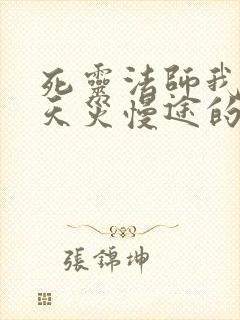 死靈法師我
天災慢途的
張錦坤